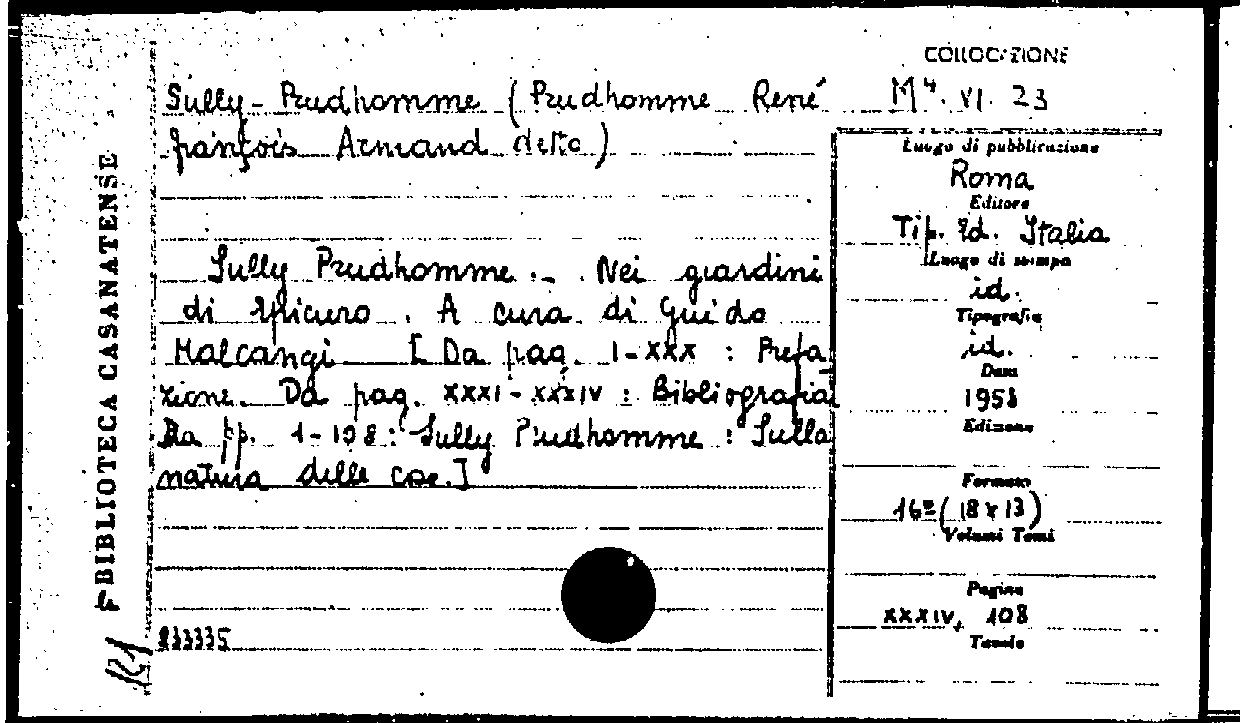 COLLOCAZIONE
Sully-Prudhomme (Prudhomme René
françois Armand detto)
M4. VI. 23
Sully Prudhomme.- Nei giardini
di Epicuro. A cura di Guido
Malcangi [Da pag. I-XXX: Prefa
zione. Da pag. XXXI-XXXIV: Bibliografia
Da pp. 1-108: Sully Prudhomme: Sulla
natura delle cose.]
833335
Luogo di pubblicazione
Roma
Editore
Tip. Ed. Italia
Luogo di stampa
id.
Tipografia
id.
Data
1958
Edizione
Formato
16º (18x13)
Volumi Tomi
Pagine
XXXIV, 108
Tavole
BIBLIOTECA CASANATENSE